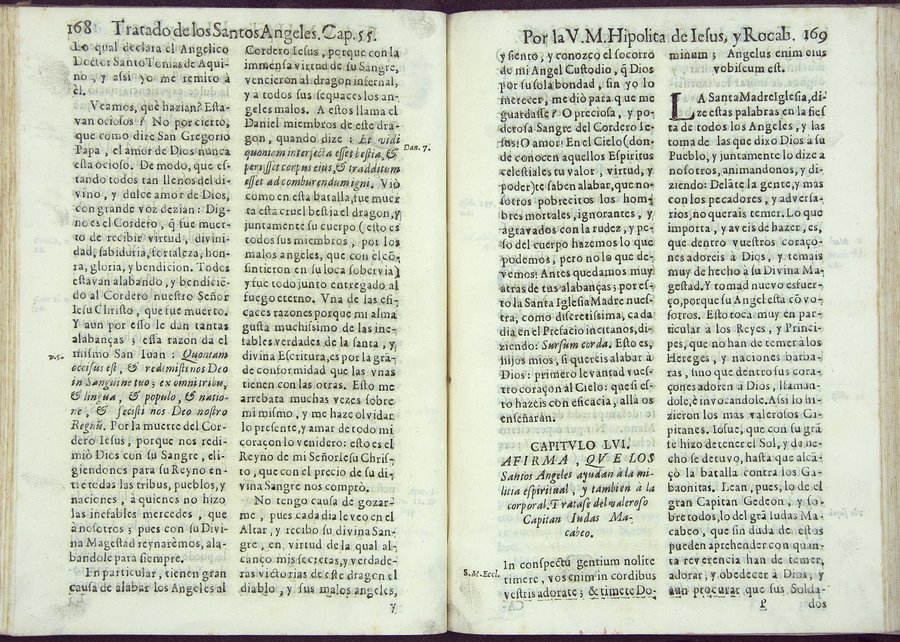 168 Tratado de los Santos Angeles. Cap. 55.
Lo qual declara el Angelico
Doctor Santo Tomas de Aqui-
no, y assi yo me remito à
èl.
Veamos, què hazian? Esta-
van ociosos? No por cierto,
que como dize San Gregorio
Papa, el amor de Dios nunca
està ocioso. De modo, que es-
tando todos tan llenos del di-
vino, y dulce amor de Dios,
con grande voz dezian: Dig-
no es el Cordero, q̃ fue muer-
to de recibir virtud, divini-
dad, sabiduria, fortaleza, hon-
ra, gloria, y bendicion. Todos
estavan alabando, y bendicie-
do al Cordero nuestro Señor
Iesu Christo, que fue muerto.
Y aun por esso le dan tantas
alabanças; essa razon da el
mismo San Iuan: Quoniam
occisus est, & redimisti nos Deo
in Sanguine tuo; ex omni tribu,
& lingua, & populo, & natio-
ne, & fecisti nos Deo nostro
Regnũ. Por la muerte del Cor-
dero Iesus, porque nos redi-
miò Dios con su Sangre, eli-
giendonos para su Reyno en-
tre todas las tribus, pueblos, y
naciones, à quienes no hizo
las inefables mercedes, que
à nosotros; pues con su Divi-
na Magestad reynarèmos, ala-
bandole para siempre.
En particular, tienen gran
causa de alabar los Angeles al
Cordero Iesus, porque con la
immensa virtud de su Sangre,
vencieron al dragon infernal,
y a todos sus sequaces los an-
geles malos. A estos llama el
Daniel miembros de este dra-
gon, quando dize: Et vidi
quoniam interfecta esset bestia, &
perisset corpus eius, & traditum
esset ad comburendum igni. Viò
como en esta batalla, fue muer
ta esta cruel bestia el dragon, y
juntamente su cuerpo (esto es
todos sus miembros, por los
malos angeles, que con el cõ-
sintieron en su loca sobervia)
y fue todo junto entregado al
fuego eterno. Vna de las efi-
caces razones porque mi alma
gusta muchissimo de las ine-
tables verdades de la santa, y
divina Escritura, es por la grã-
de conformidad que las vnas
tienen con las otras. Esto me
arrebata muchas vezes sobre
mi mismo, y me haze olvidar
lo presente, y amar de todo mi
coraçon lo venidero: esto es el
Reyno de mi Señor Iesu Chris-
to, que con el precio de su di-
vina Sangre nos comprò.
No tengo causa de gozar-
me, pues cada dia le veo en el
Altar, y recibo su divina San-
gre, en virtud de la qual al-
canço mis secretas, y verdade-
ras victorias de este dragon el
diablo, y sus malos angeles,
y
Dan. 7.
Por la V. M. Hipolita de Iesus, y Rocab. 169
y siento, y conozco el socorro
de mi Angel Custodio, q̃ Dios
por su sola bondad, sin yo lo
merecer, me diò para que me
guardasse? O preciosa, y po-
derosa Sangre del Cordero Ie-
sus! O amor! En el Cielo (don-
de conocen aquellos Espiritus
celestiales tu valor, virtud, y
poder) te saben alabar, que no-
sotros pobrecitos los hom-
bres mortales, ignorantes, y
agravados con la rudez, y pe-
so del cuerpo hazemos lo que
podemos, pero no lo que de-
vemos: Antes quedamos muy
atras de tus alabanças; por es-
to la Santa Iglesia Madre nues-
tra, como discretissima, cada
dia en el Prefacio incitanos, di-
ziendo: Sursum corda. Esto es,
hijos mios, si quereis alabar à
Dios: primero levantad vues-
tro coraçon al Cielo: que si es-
to hazeis con eficacia, allà os
enseñaràn.
CAPITVLO LVI.
AFIRMA, QVE LOS
Santos Angeles ayudan à la mi-
litia espiritual, y tambien à la
corporal. Tratase del valeroso
Capitan Iudas Ma-
cabeo.
S. M. Eccl.
In conspectu gentium nolite
timere, vos enim in cordibus
vestris adorate; & timete Do-
CA-
minum; Angelus enim eius
vobiscum est.
LA Santa Madre Iglesia, di-
ze estas palabras en la fies
ta de todos los Angeles, y las
toma de las que dixo Dios à su
Pueblo, y juntamente lo dize a
nosotros, animandonos, y di-
ziendo: Delãte la gente, y mas
con los pecadores, y adversa-
rios, no querais temer. Lo que
importa, y aveis de hazer, es,
que dentro vuestros coraço-
nes adoreis à Dios, y temais
muy de hecho a su Divina Ma-
gestad. Y tomad nuevo esfuer-
ço, porque su Angel està cõ vo-
sotros. Esto toca muy en par-
ticular à los Reyes, y Princi-
pes, que no han de temer à los
Hereges, y naciones barba-
ras, sino que dentro sus cora-
çones adoren à Dios, llaman-
dole, è invocandole. Assi lo hi-
zieron los mas valerosos Ca-
pitanes. Iosue, que con su grã
fè hizo detener el Sol, y de he-
cho se detuvo, hasta que alcã-
çò la batalla contra los Ga-
baonitas. Lean, pues, lo de el
gran Capitan Gedeon, y so-
bre todos, lo del grã Iudas Ma-
cabeo, que sin duda de estos
pueden aprehender con quan-
ta reverencia han de temer,
adorar, y obedecer à Dios, y
aun procurar que sus Solda-
P dos